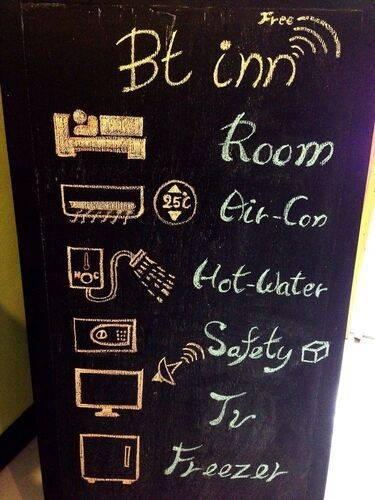 Free
Bt inn
Room
25°C Air-Con
H C Hot-Water
Safety
Tv
Freezer